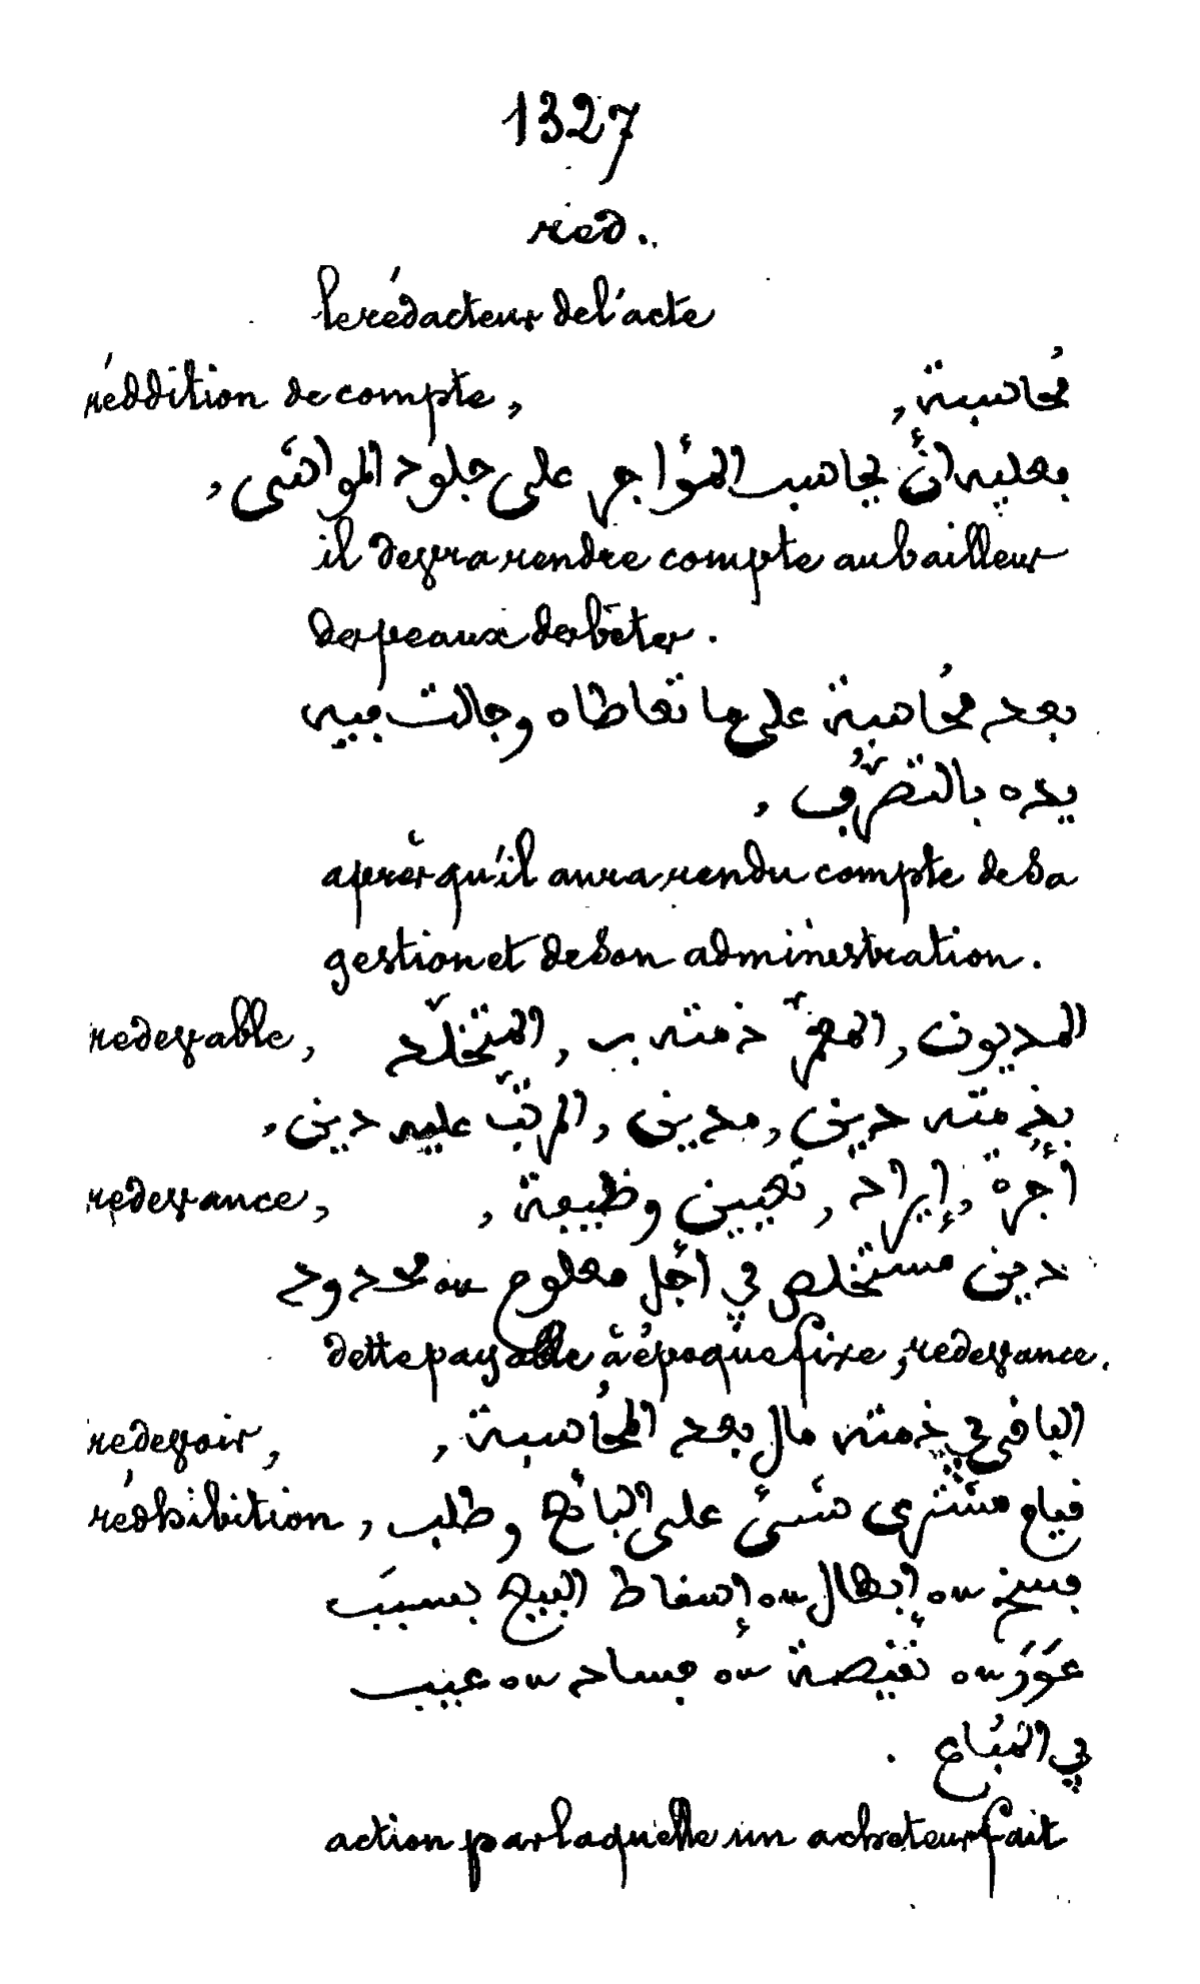 1327
red.
le rédacteur de l'acte
réddition de compte, مُحاسبة,
بعليه أنْ يحاسب المؤاجر على جلود المواشى,
il devra rendre compte au bailleur
des peaux des bêtes.
بعد مُحاسبة على ما تعاطاه وجالت فيه
يده بالتصرُّف,
après qu'il aura rendu compte de sa
gestion et de son administration.
redevable, المديون, المعمّر ذمته ب, المتخلّد
بذمته دين, مدين, المرتّب عليه دين,
redevance, أجرة, إيراد, تعيين وظيفة,
دين مستخلص في أجل معلوم ou محدود
dette payable à époque fixe, redevance.
redevoir, الباقي في ذمته مال بعد المُحاسبة,
rédhibition, قيام مشترى شىئ على البائع وطلب
فسخ ou إبطال ou إسقاط البيع بسبب
عَوَر ou نقيصة ou فساد ou عيب
في المُبْاع.
action par laquelle un acheteur fait